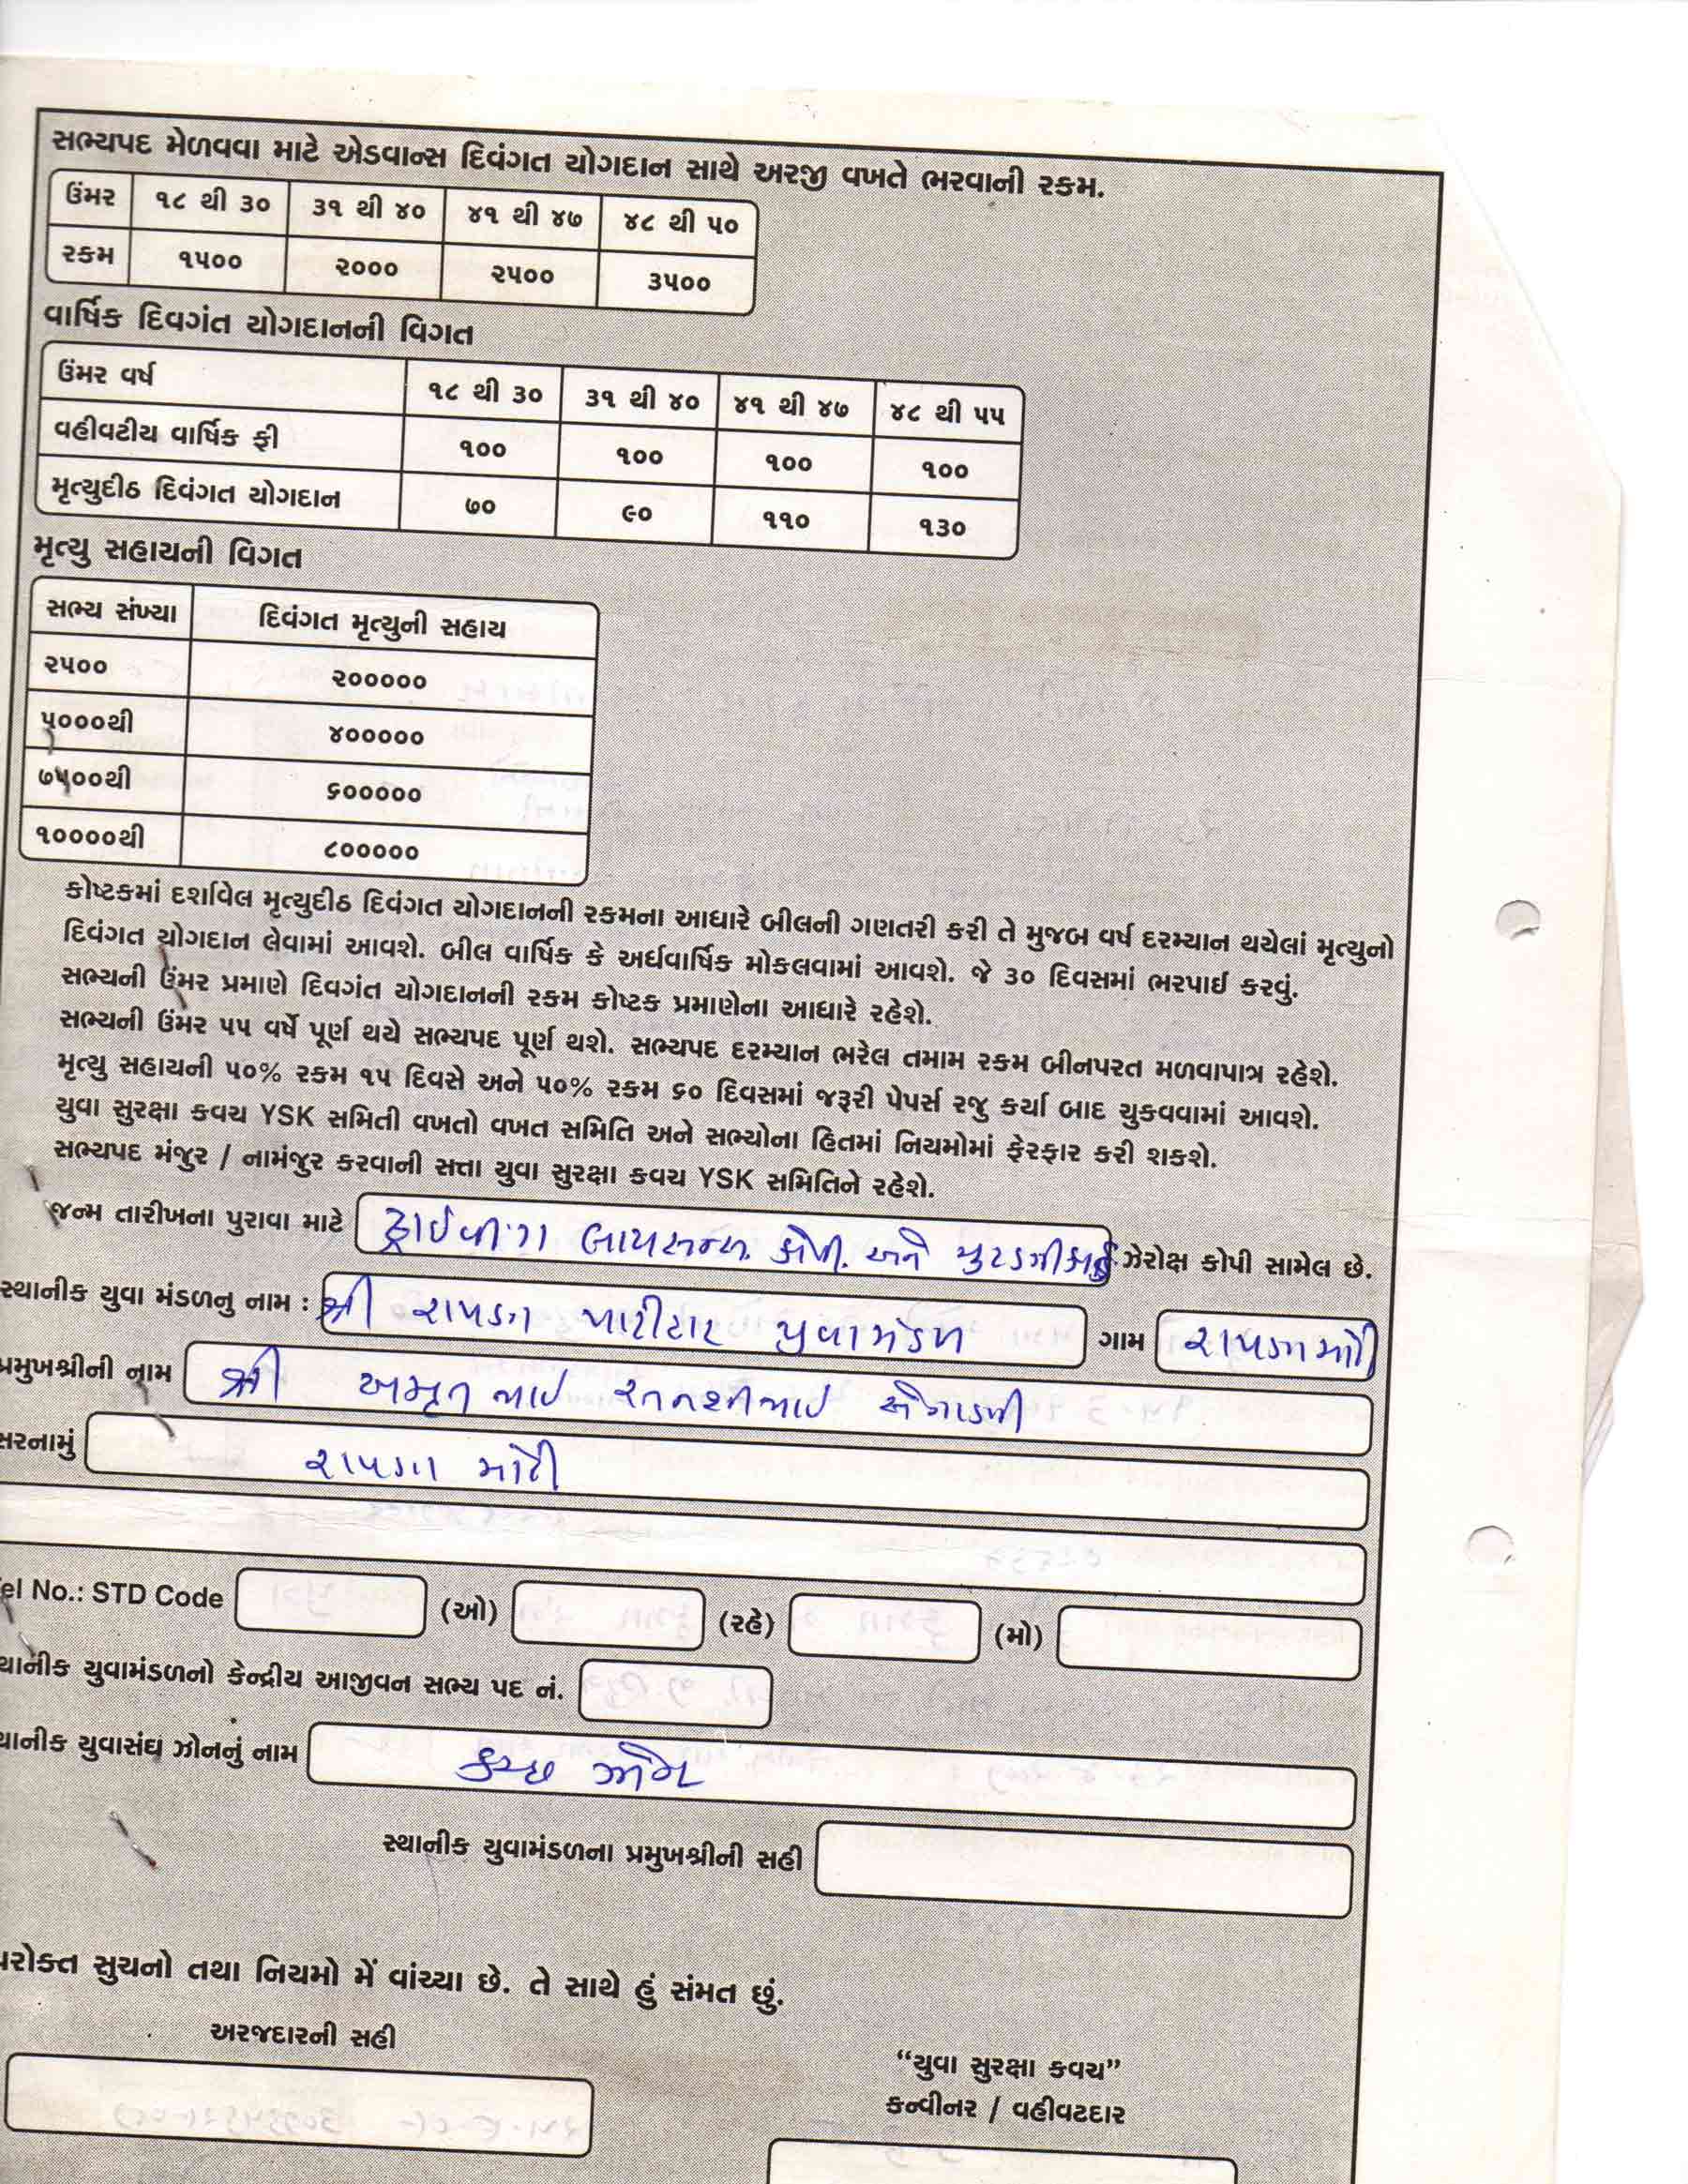 સભ્યપદ મેળવવા માટે એડવાન્સ દિવંગત યોગદાન સાથે અરજી વખતે ભરવાની રકમ.
ઉંમર ૧૮ થી ૩૦ ૩૧ થી ૪૦ ૪૧ થી ૪૭ ૪૮ થી ૫૦
રકમ ૧૫૦૦ ૨૦૦૦ ૨૫૦૦ ૩૫૦૦
વાર્ષિક દિવગંત યોગદાનની વિગત
ઉંમર વર્ષ ૧૮ થી ૩૦ ૩૧ થી ૪૦ ૪૧ થી ૪૭ ૪૮ થી ૫૫
વહીવટીય વાર્ષિક ફી ૧૦૦ ૧૦૦ ૧૦૦ ૧૦૦
મૃત્યુદીઠ દિવંગત યોગદાન ૭૦ ૯૦ ૧૧૦ ૧૩૦
મૃત્યુ સહાયની વિગત
સભ્ય સંખ્યા દિવંગત મૃત્યુની સહાય
૨૫૦૦ ૨૦૦૦૦૦
૫૦૦૦થી ૪૦૦૦૦૦
૭૫૦૦થી ૬૦૦૦૦૦
૧૦૦૦૦થી ૮૦૦૦૦૦
કોષ્ટકમાં દર્શાવેલ મૃત્યુદીઠ દિવંગત યોગદાનની રકમના આધારે બીલની ગણતરી કરી તે મુજબ વર્ષ દરમ્યાન થયેલાં મૃત્યુનો
દિવંગત યોગદાન લેવામાં આવશે. બીલ વાર્ષિક કે અર્ધવાર્ષિક મોકલવામાં આવશે. જે ૩૦ દિવસમાં ભરપાઈ કરવું.
સભ્યની ઉંમર પ્રમાણે દિવગંત યોગદાનની રકમ કોષ્ટક પ્રમાણેના આધારે રહેશે.
સભ્યની ઉંમર ૫૫ વર્ષે પૂર્ણ થયે સભ્યપદ પૂર્ણ થશે. સભ્યપદ દરમ્યાન ભરેલ તમામ રકમ બીનપરત મળવાપાત્ર રહેશે.
મૃત્યુ સહાયની ૫૦% રકમ ૧૫ દિવસે અને ૫૦% રકમ ૬૦ દિવસમાં જરૂરી પેપર્સ રજુ કર્યા બાદ ચુકવવામાં આવશે.
યુવા સુરક્ષા કવચ YSK સમિતી વખતો વખત સમિતિ અને સભ્યોના હિતમાં નિયમોમાં ફેરફાર કરી શકશે.
સભ્યપદ મંજુર / નામંજુર કરવાની સત્તા યુવા સુરક્ષા કવચ YSK સમિતિને રહેશે.
જન્મ તારીખના પુરાવા માટે ડ્રાઈવીંગ લાયસન્સ કોપી. અને ઝેરોક્ષ કોપી સામેલ છે.
સ્થાનીક યુવા મંડળનુ નામ : શ્રી રાપડગ પાટીદાર યુવામંડળ ગામ રાપડગા મોટી
પ્રમુખશ્રીની નામ શ્રી અમૃતભાઈ રતનશીભાઈ
સરનામું રાપડગા મોટી
el No.: STD Code (ઓ) (રહે) (મો)
થાનીક યુવામંડળનો કેન્દ્રીય આજીવન સભ્ય પદ નં.
થાનીક યુવાસંઘ ઝોનનું નામ કચ્છ ઝોન
સ્થાનીક યુવામંડળના પ્રમુખશ્રીની સહી
પરોક્ત સુચનો તથા નિયમો મેં વાંચ્યા છે. તે સાથે હું સંમત છું.
અરજદારની સહી
“યુવા સુરક્ષા કવચ”
કન્વીનર / વહીવટદાર